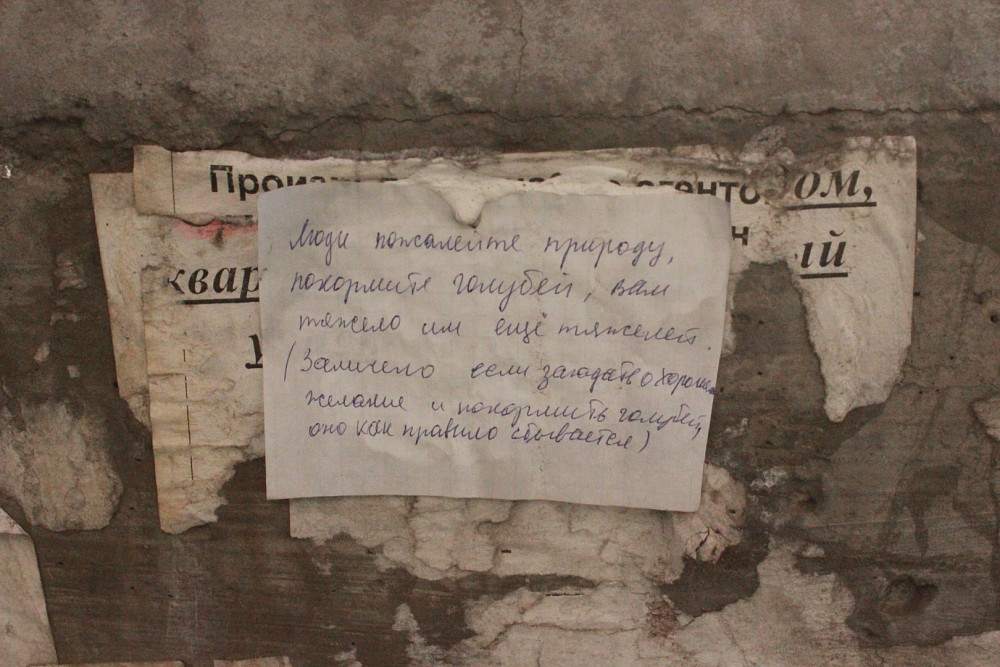 Произ агенто ом,
н
квар ый
Люди пожалейте природу,
покормите голубей, вам
тяжело им ещё тяжелей.
(Замечено если загадать о хорош
желание и покормить голубей,
оно как правило сбывается)